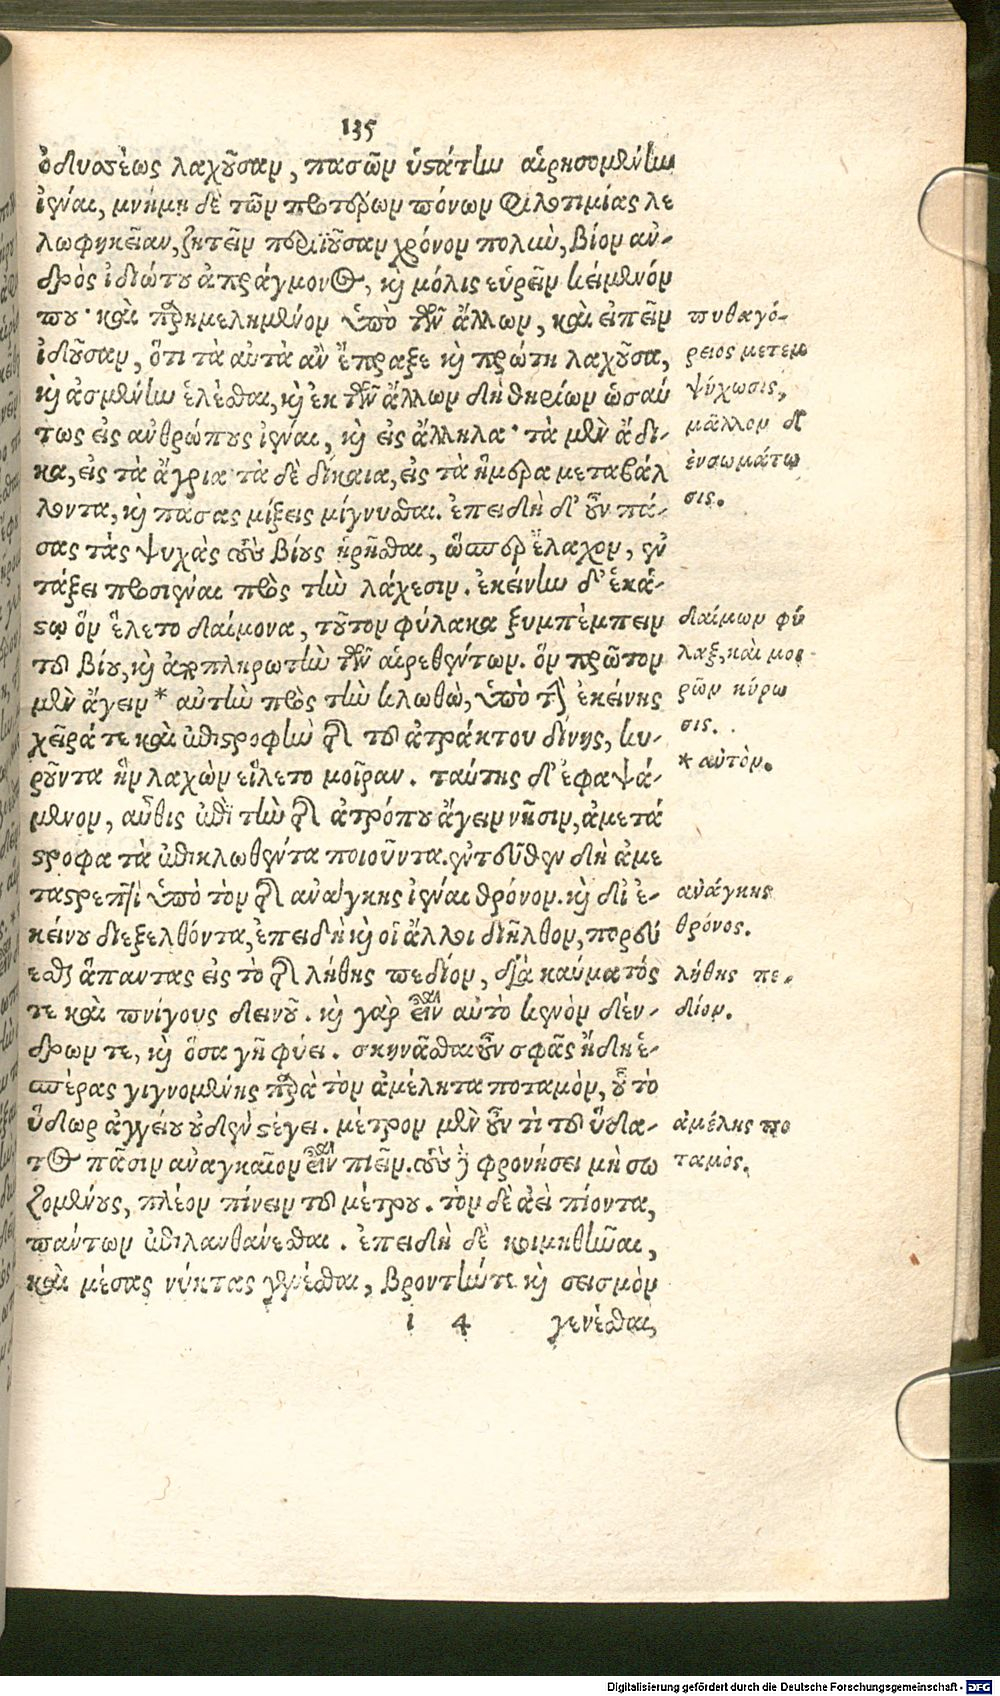 135
ὀδυσσέως λαχοῦσαν, πασῶν ὑστάτην αἱρησομένην
ἰέναι, μνήμῃ δὲ τῶν προτέρων πόνων φιλοτιμίας λε
λωφηκεῖαν, ζητεῖν περιϊοῦσαν χρόνον πολὺν, βίον ἀν-
δρὸς ἰδιώτου ἀπράγμονος, καὶ μόλις εὑρεῖν κείμενόν
που· καὶ παρημελημένον ὑπὸ τῶν ἄλλων, καὶ εἰπεῖν
ἰδοῦσαν, ὅτι τὰ αὐτὰ ἂν ἔπραξε καὶ πρώτη λαχοῦσα,
καὶ ἀσμένην ἑλέσθαι, καὶ ἐκ τῶν ἄλλων δὴ θηρίων ὡσαύ
τως εἰς ἀνθρώπους ἰέναι, καὶ εἰς ἄλληλα· τὰ μὲν ἄδι-
κα, εἰς τὰ ἄγρια· τὰ δὲ δίκαια, εἰς τὰ ἥμερα μεταβάλ
λοντα, καὶ πάσας μίξεις μίγνυσθαι. ἐπειδὴ δ' οὖν πά-
σας τὰς ψυχὰς τοὺς βίους ᾑρῆσθαι, ὥσπερ ἔλαχον, ἐν
τάξει προσιέναι πρὸς τὴν λάχεσιν. ἐκείνην δ' ἑκά-
στῳ ὃν ἕλετο δαίμονα, τοῦτον φύλακα ξυμπέμπειν
τοῦ βίου, καὶ ἀποπληρωτὴν τῶν αἱρεθέντων. ὃν πρῶτον
μὲν ἄγειν * αὐτὴν πρὸς τὴν κλωθὼ, ὑπὸ τὴν ἐκείνης
χεῖρά τε καὶ ἐπιστροφὴν τῆς τοῦ ἀτράκτου δίνης, κυ-
ροῦντα ἣν λαχὼν εἵλετο μοῖραν. ταύτης δ' ἐφαψά-
μενον, αὖθις ἐπὶ τὴν τῆς ἀτρόπου ἄγειν νῆσιν, ἀμετά
στροφα τὰ ἐπικλωθέντα ποιοῦντα. ἐντεῦθεν δὴ ἀμε
ταστρεπτὶ ὑπὸ τὸν τῆς ἀνάγκης ἰέναι θρόνον. καὶ δι' ἐ-
κείνου διεξελθόντα, ἐπειδὴ καὶ οἱ ἄλλοι διῆλθον, πορεύ
εσθαι ἅπαντας εἰς τὸ τῆς λήθης πεδίον, διὰ καύματός
τε καὶ πνίγους δεινοῦ. καὶ γὰρ εἶναι αὐτὸ κενὸν δέν-
δρων τε, καὶ ὅσα γῆ φύει. σκηνᾶσθαι οὖν σφᾶς ἤδη ἑ-
σπέρας γιγνομένης παρὰ τὸν ἀμέλητα ποταμὸν, οὗ τὸ
ὕδωρ ἀγγεῖου οὐδὲν στέγει. μέτρον μὲν οὖν τὶ τοῦ ὕδα-
τος πᾶσιν ἀναγκαῖον εἶναι πιεῖν. τοὺς δὲ φρονήσει μὴ σω
ζομένους, πλέον πίνειν τοῦ μέτρου. τὸν δὲ ἀεὶ πίοντα,
πάντων ἐπιλανθάνεσθαι. ἐπειδὴ δὲ κοιμηθῆναι,
καὶ μέσας νύκτας γενέσθαι, βροντήν τε καὶ σεισμὸν
i 4 γενέσθαι,
πυθαγό-
ρειος μετεμ
ψύχωσις,
μᾶλλον δὲ
ἐνσωμάτω
σις.
δαίμων φύ
λαξ, καὶ μοι
ρῶν κύρω
σις.
* αὐτὸν.
ἀνάγκης
θρόνος.
λήθης πε-
δίον.
ἀμέλης πο
ταμός.
Digitalisierung gefördert durch die Deutsche Forschungsgemeinschaft - DFG